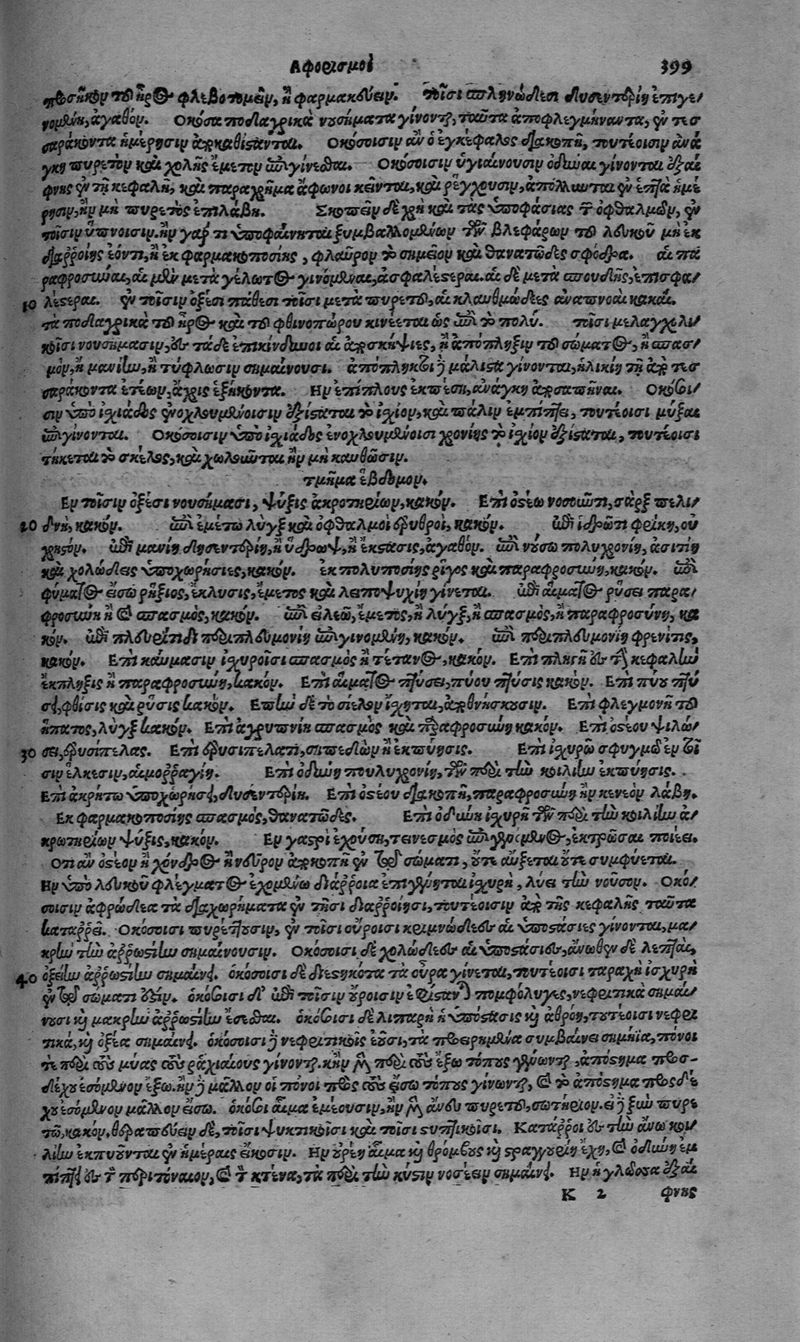 Αφορισμοί 399
προσῆκον τοῦ ἦρος φλεβοτομεῖν, ἢ φαρμακεύειν. τοῖσι σπληνώδεσι δυσεντερίη ἐπιγε/
νομένη, ἀγαθόν. Οκόσα ποδαγρικὰ νουσήματα γίνονται, ταῦτα ἀποφλεγμήναντα, ἐν τεσ
σαράκοντα ἡμέρῃσιν ἀποκαθίσταται. Οκόσοισιν ἂν ὁ ἐγκέφαλος διακοπῇ, τουτέοισιν ἀνά
γκη πυρετὸν καὶ χολῆς ἔμετον ἐπιγίνεσθαι. Οκόσοισιν ὑγιαίνουσιν ὀδύναι γίνονται ἐξαί
φνης ἐν τῇ κεφαλῇ, καὶ παραχρῆμα ἄφωνοι κεῖνται, καὶ ῥέγχουσιν, ἀπόλλυνται ἐν ἑπτὰ ἡμέ
ρῃσιν, ἢν μὴ πυρετὸς ἐπιλάβῃ. Σκοπεῖν δὲ χρὴ καὶ τὰς ὑποφάσιας τῶν ὀφθαλμῶν, ἐν
τοῖσιν ὕπνοισιν, ἢν γάρ τι ὑποφαίνηται ξυμβαλλομένων τῶν βλεφάρων τοῦ λευκοῦ μὴ ἐκ
διαῤῥοίης ἐόντι, ἢ ἐκ φαρμακοποσίης, φλαῦρον τὸ σημεῖον καὶ θανατῶδες σφόδρα. αἱ πα
ραφροσύναι, αἱ μὲν μετὰ γέλωτος γινόμεναι, ἀσφαλέστεραι. αἱ δὲ μετὰ σπουδῆς, ἐπισφα/
10 λέστεραι. ἐν τοῖσιν ὀξέσι πάθεσι τοῖσι μετὰ πυρετοῦ, αἱ κλαυθμώδεες ἀναπνοαὶ κακαί.
τὰ ποδαγρικὰ τοῦ ἦρος καὶ τοῦ φθινοπώρου κινέεται ὡς ἐπὶ τὸ πολύ. τοῖσι μελαγχολι/
κοῖσι νουσήμασιν, ἐς τάδε ἐπικίνδυνοι αἱ ἀποσκήψιες, ἢ ἀπόπληξιν τοῦ σώματος, ἢ σπασ
μὸν, ἢ μανίην, ἢ τύφλωσιν σημαίνουσι. ἀπόπληκτοι δὲ μάλιστα γίνονται, ἡλικίῃ τῇ ἀπὸ τεσ
σαράκοντα ἐτέων, ἄχρις ἑξήκοντα. Ην ἐπίπλους ἐκπέσῃ, ἀνάγκη ἀποσαπῆναι. Οκόσοι/
σιν ὑπὸ ἰσχιάδος ἐνοχλευμένοισιν ἐξίσταται τὸ ἰσχίον, καὶ πάλιν ἐμπίπτει, τουτέοισι μύξαι
ἐπιγίνονται. Οκόσοισιν ὑπὸ ἰσχιάδος ἐνοχλευμένοισι χρονίης τὸ ἰσχίον ἐξίσταται, τουτέοισι
τήκεται τὸ σκέλος, καὶ χωλοῦνται ἢν μὴ καυθῶσιν.
τμῆμα ἕβδομον.
Εν τοῖσιν ὀξέσι νουσήμασι, ψύξις ἀκροτηρίων, κακόν. Επὶ ὀστέῳ νοσοῦντι, σὰρξ πελι/
20 δνὴ, κακόν. ἐπὶ ἐμέτῳ λὺγξ καὶ ὀφθαλμοὶ ἐρυθροὶ, κακόν. ἐπὶ ἱδρῶτι φρίκη, οὐ
χρηστόν. ἐπὶ μανίῃ δυσεντερίη, ἢ ὕδρωψ, ἢ ἔκστασις, ἀγαθόν. ἐπὶ νούσῳ πολυχρονίῃ, ἀσιτίη
καὶ χολώδεις ὑποχωρήσιες, κακόν. ἐκ πολυποσίης ῥῖγος καὶ παραφροσύνη, κακόν. ἐπὶ
φύματος ἔσω ῥήξιος, ἔκλυσις, ἔμετος καὶ λειποψυχίη γίνεται. ἐπὶ αἵματος ῥύσει παρα/
φροσύνη ἢ καὶ σπασμὸς, κακόν. ἐπὶ εἰλεῷ, ἔμετος, ἢ λὺγξ, ἢ σπασμὸς, ἢ παραφροσύνη, κα
κόν. ἐπὶ πλευρίτιδι περιπλευμονίη ἐπιγινομένη, κακόν. ἐπὶ περιπλευμονίῃ φρενῖτις,
κακόν. Επὶ καύμασιν ἰσχυροῖσι σπασμὸς ἢ τέτανος, κακόν. Επὶ πληγῇ ἐς τὴν κεφαλὴν
ἔκπληξις ἢ παραφροσύνη, κακόν. Επὶ αἵματος πτύσει, πύου πτύσις κακόν. Επὶ πύου πτύ
σει, φθίσις καὶ ῥύσις κακόν. Επὴν δὲ τὸ σίελον ἴσχηται, ἀποθνήσκουσιν. Επὶ φλεγμονῇ τοῦ
ἥπατος, λὺγξ κακόν. Επὶ ἀγρυπνίῃ σπασμὸς καὶ παραφροσύνη κακόν. Επὶ ὀστέου ψιλώ/
30 σει, ἐρυσίπελας. Επὶ ἐρυσιπέλατι, σηπεδὼν ἢ ἐκπύησις. Επὶ ἰσχυρῷ σφυγμῷ ἐν τοῖ
σιν ἕλκεσιν, αἱμοῤῥαγίη. Επὶ ὀδύνῃ πουλυχρονίῃ, τῶν περὶ τὴν κοιλίην ἐκπύησις.
Επὶ ἀκρήτῳ ὑποχωρήσει, δυσεντερίη. Επὶ ὀστέου διακοπῇ, παραφροσύνη ἢν κενεὸν λάβῃ.
Εκ φαρμακοποσίης σπασμὸς, θανατῶδες. Επὶ ὀδύνῃ ἰσχυρῇ τῶν περὶ τὴν κοιλίην ἀ/
κρωτηρίων ψύξις, κακόν. Εν γαστρὶ ἐχούσῃ, τεινεσμὸς ἐπιγενόμενος, ἐκτρῶσαι ποιέει.
Οτι ἂν ὀστέον ἢ χόνδρος ἢ νεῦρον ἀποκοπῇ ἐν τῷ σώματι, οὔτε αὔξεται οὔτε συμφύεται.
Ην ὑπὸ λευκοῦ φλέγματος ἐχομένῳ διάῤῥοια ἐπιγένηται ἰσχυρὴ, λύει τὴν νοῦσον. Οκό/
σοισιν ἀφρώδεα τὰ διαχωρήματα ἐν τῇσι διαῤῥοίῃσι, τουτέοισιν ἀπὸ τῆς κεφαλῆς ταῦτα
καταῤῥεῖ. Οκόσοισι πυρέττουσιν, ἐν τοῖσι οὔροισι κριμνώδεες αἱ ὑποστάσιες γίνονται, μα/
κρὴν τὴν ἀῤῥωστίην σημαίνουσιν. Οκόσοισι δὲ χολώδεες αἱ ὑποστάσιες, ἄνωθεν δὲ λεπταὶ,
40 ὀξείην ἀῤῥωστίην σημαίνει. ὁκόσοισι δὲ διεστηκότα τὰ οὖρα γίνεται, τουτέοισι ταραχὴ ἰσχυρὴ
ἐν τῷ σώματί ἐστιν. ὁκόσοισι δ' ἐπὶ τοῖσιν οὔροισιν ἐφίστανται πομφόλυγες, νεφριτικὰ σημαί/
νουσι καὶ μακρὴν ἀῤῥωστίην ἔσεσθαι. ὁκόσοισι δὲ λιπαρὴ ἡ ὑπόστασις καὶ ἀθρόη, τουτέοισι νεφρι
τικὰ, καὶ ὀξέα σημαίνει. ὁκόσοισι δὲ νεφριτικοῖς ἐοῦσι, τὰ προειρημένα συμβαίνει σημήϊα, πόνοι
τε περὶ τοὺς μύας τοὺς ῥαχιαίους γίνονται. κἢν μὲν περὶ τοὺς ἔξω τόπους γένωνται, ἀπόστημα προσ-
δέχου ἐσόμενον ἔξω. ἢν δὲ μᾶλλον οἱ πόνοι πρὸς τοὺς ἔσω τόπους γίνωνται, καὶ τὸ ἀπόστημα προσδέ
χου ἐσόμενον μᾶλλον ἔσω. ὁκόσοι αἷμα ἐμέουσιν, ἢν μὲν ἄνευ πυρετοῦ, σωτήριον. εἰ δὲ ξὺν πυρε
τῷ, κακόν. θεραπεύειν δὲ, τοῖσι ψυκτικοῖσι καὶ τοῖσι στυπτικοῖσι. Κατάῤῥοι ἐς τὴν ἄνω κοι/
λίην ἐκπυοῦνται ἐν ἡμέραις εἴκοσιν. Ην οὐρέῃ αἷμα καὶ θρόμβους καὶ στραγγουρίη ἔχῃ, καὶ ὀδύνη ἐμ
πίπτει ἐς τὸν περιτόναιον, καὶ τὸν κτένα, τὰ περὶ τὴν κύστιν νοσέειν σημαίνει. Ην ἡ γλῶσσα ἐξαί
K 2 φνης